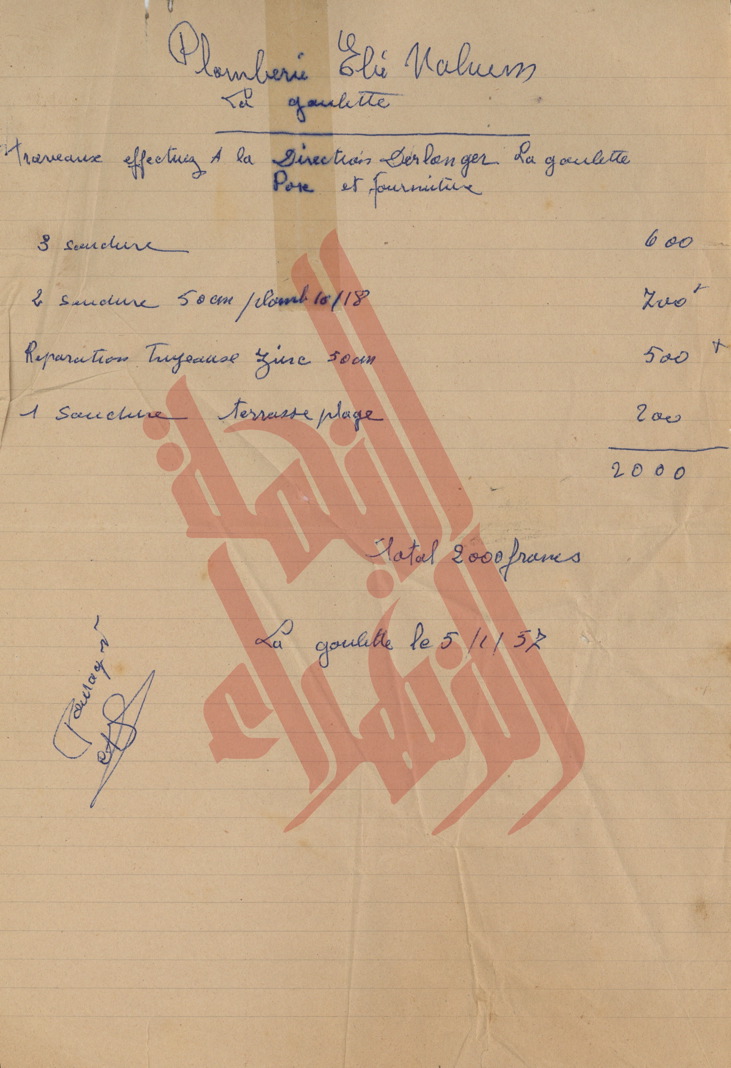 Plomberie Elie Nahum
La goulette
Traveaux effectuez A la Direction Derlanger La goulette
Pose et fourniture
3 soudure 600
2 soudure 50cm plomb 10/18 700
Reparation Tuyeause Zinc 50cm 500
1 Soudure terrasse plage 200
2000
Total 2000 francs
La goulette le 5/1/57
النجمة
الزهراء